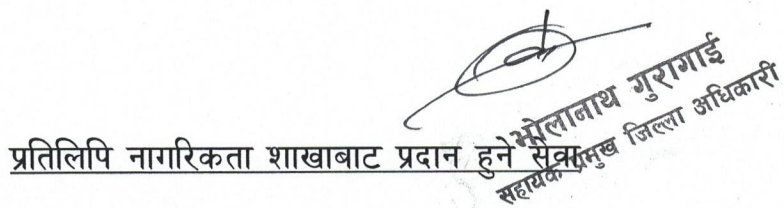 भोलानाथ गुरागाई
सहायक प्रमुख जिल्ला अधिकारी
प्रतिलिपि नागरिकता शाखाबाट प्रदान हुने सेवा